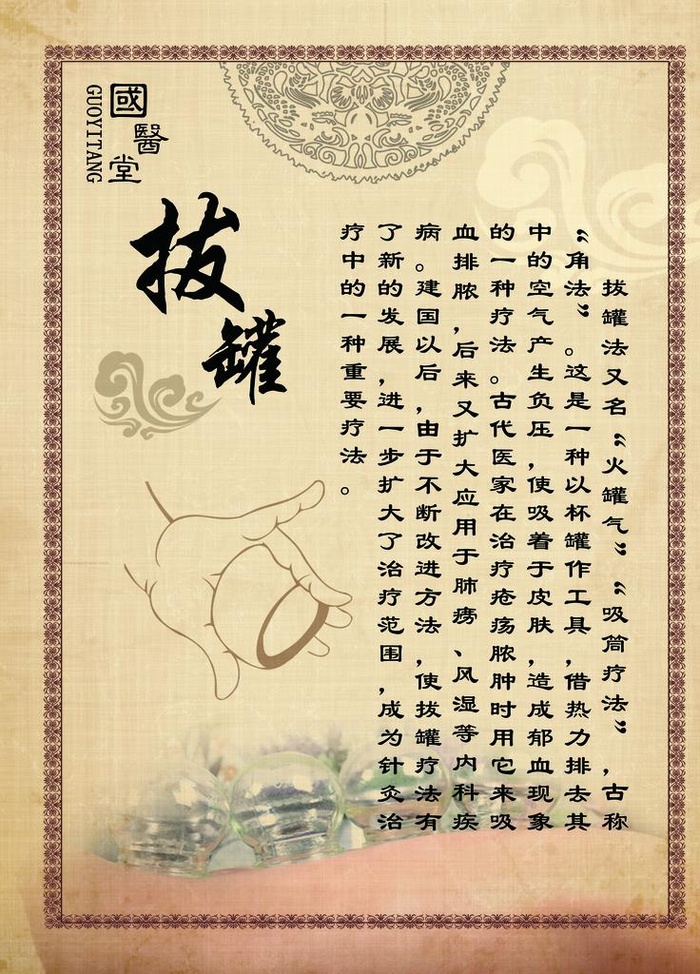 國醫堂
GUOYITANG
拔罐
拔罐法又名“火罐气”“吸筒疗法”，古称
“角法”。这是一种以杯罐作工具，借热力排去其
中的空气产生负压，使吸着于皮肤，造成郁血现象
的一种疗法。古代医家在治疗疮疡脓肿时用它来吸
血排脓，后来又扩大应用于肺痨、风湿等内科疾
病。建国以后，由于不断改进方法，使拔罐疗法有
了新的发展，进一步扩大了治疗范围，成为针灸治
疗中的一种重要疗法。